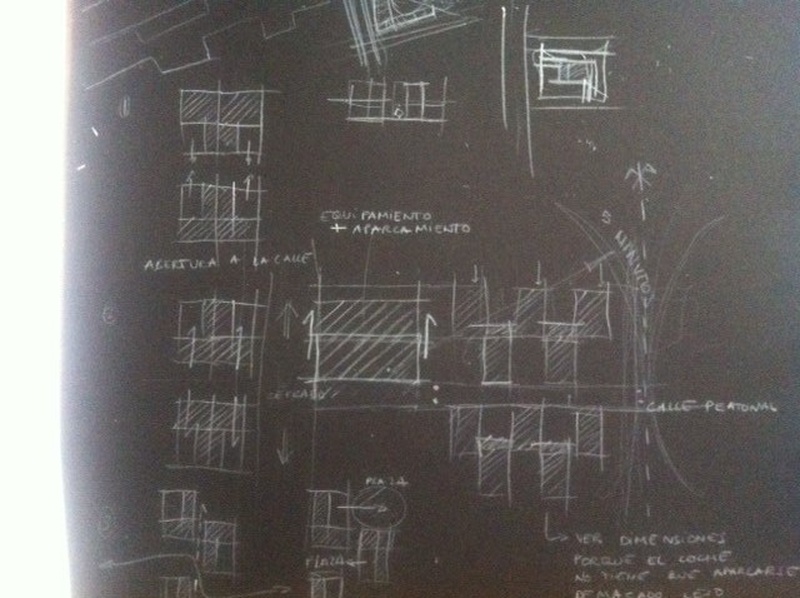 EQUIPAMIENTO
+ APARCAMIENTO
ABERTURA A LA CALLE
5 MINUTOS
CALLE PEATONAL
PLAZA
PLAZA
VER DIMENSIONES
PORQUE EL COCHE
NO TIENE QUE APARCARSE
DEMACADO LEJO